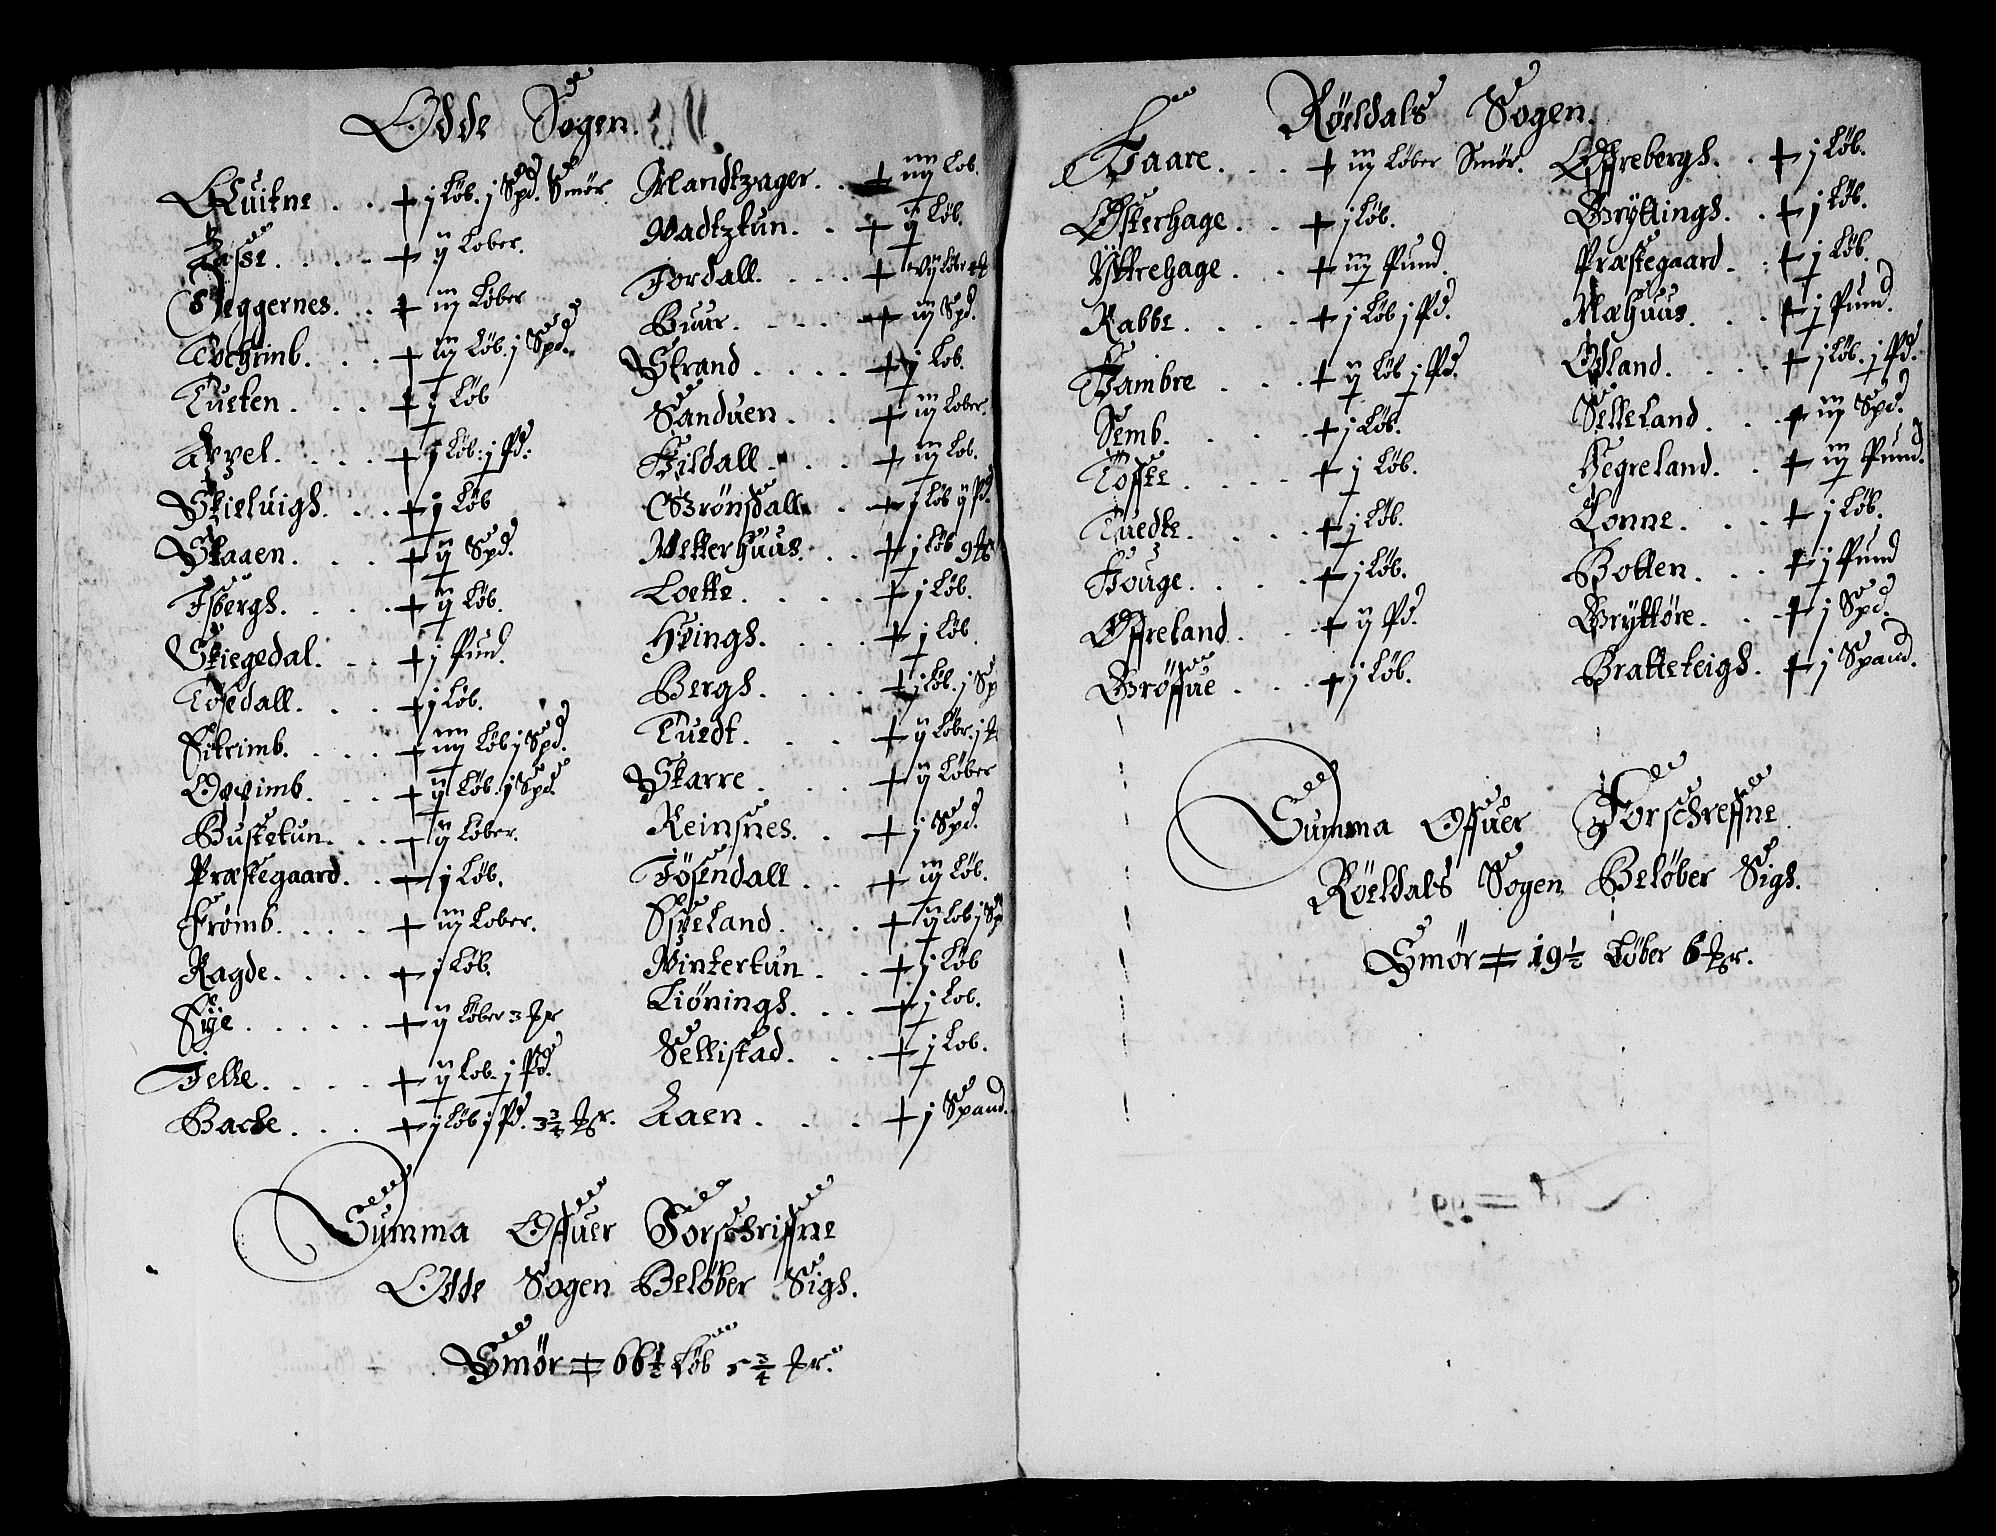 Odde Sogen.
Quitne . . + j Løb. j Spd. Smør
Jasse . . . . + ij Løber.
Seggernes. . . + iij Løber
Tochrimb. . . + iij Løb. j Spd.
Tueten . . . + j Løb
Appel . . . . + j Løb: j Pd:
Skieluigh. . . + j Løb
Skaaen. . . . + ij Spd.
Isbergh. . . . + ij Løb.
Skiegedal. . . + j Pund.
Tosedall. . . + j Løb.
Eitrimb. . . . + iiij Løb j Spd.
Opimb. . . . + ij Løb. j Spd.
Busketun. . . + ij Løber.
Præstegaard. . + j Løb.
Frømb. . . . + iij Løber.
Ragde. . . . + j Løb.
Eije . . . . . + ij Løber 3 #r
Jelle. . . . + ij Løb. j Pd.
Backe. . . . + j Løb j Pd. 3 3/4 #r.
Mandtzager. . + iiij Løb.
Vadtztun. . + ij Løb.
Jordall. . . . + vij Løb
Buur. . . . . + iij Spd.
Strand . . . . + j Løb.
Sanduen . . + iij Løber.
Hildall . . . + iij Løb.
Grønsdall. . + j Løb ij Pd.
Vetterhuus. . . + j Løb 9 #
Loette. . . . . + j Løb.
Hvingh. . . . + j Løb.
Bergh. . . . . + j Løb. j Sp
Tuedt. . . . + ij Løbr. j #
Skarre . . . . + ij Løber
Reinsnes. . . + j Spd.
Jøsendall . . + iij Løb.
Espeland. . . . + ij Løb j Sp
Vintertun . . + j Løb
Liønings. . . . + j Løb.
Sellistad. . . . + j Løb.
Aaen . . . . + j Spand.
Summa Offuer Forschriffne
Odde Sogen Beløber Sigh.
Smør + 66 1/2 Løb 5 3/4 #r.
Røeldals Sogen.
Haare. . . . + iij Løber Smør.
Østerhage. . . + j Løb.
Yttrehage . . . + iij Pund.
Rabbe. . . . . + j Løb j Pd.
Hambre . . . + ij Løb j Pd.
Semb. . . . . + j Løb.
Tøffte . . . . + j Løb.
Tuedte. . . . + j Løb.
Houge. . . . . + j Løb.
Offreland. . . + ij Pd.
Grøffue . . . + j Løb.
Offrebergh. . . + j Løb.
Gryttingh. . . + j Løb.
Præstegaard. . + j Løb.
Næhuus. . . . + j Pund.
Øland. . . . . + j Løb. j Pd.
Selleland . . . + iij Spd.
Hegreland. . . + iij Pund.
Lonne. . . . + j Løb.
Botten. . . . + j Pund
Gryttøre. . . + j Spd.
Bratteteigh. . + j Spand.
Summa Offuer Forschreffne
Røeldals Sogen Beløber Sigh.
Smør + 19 1/2 Løber 6 #r.